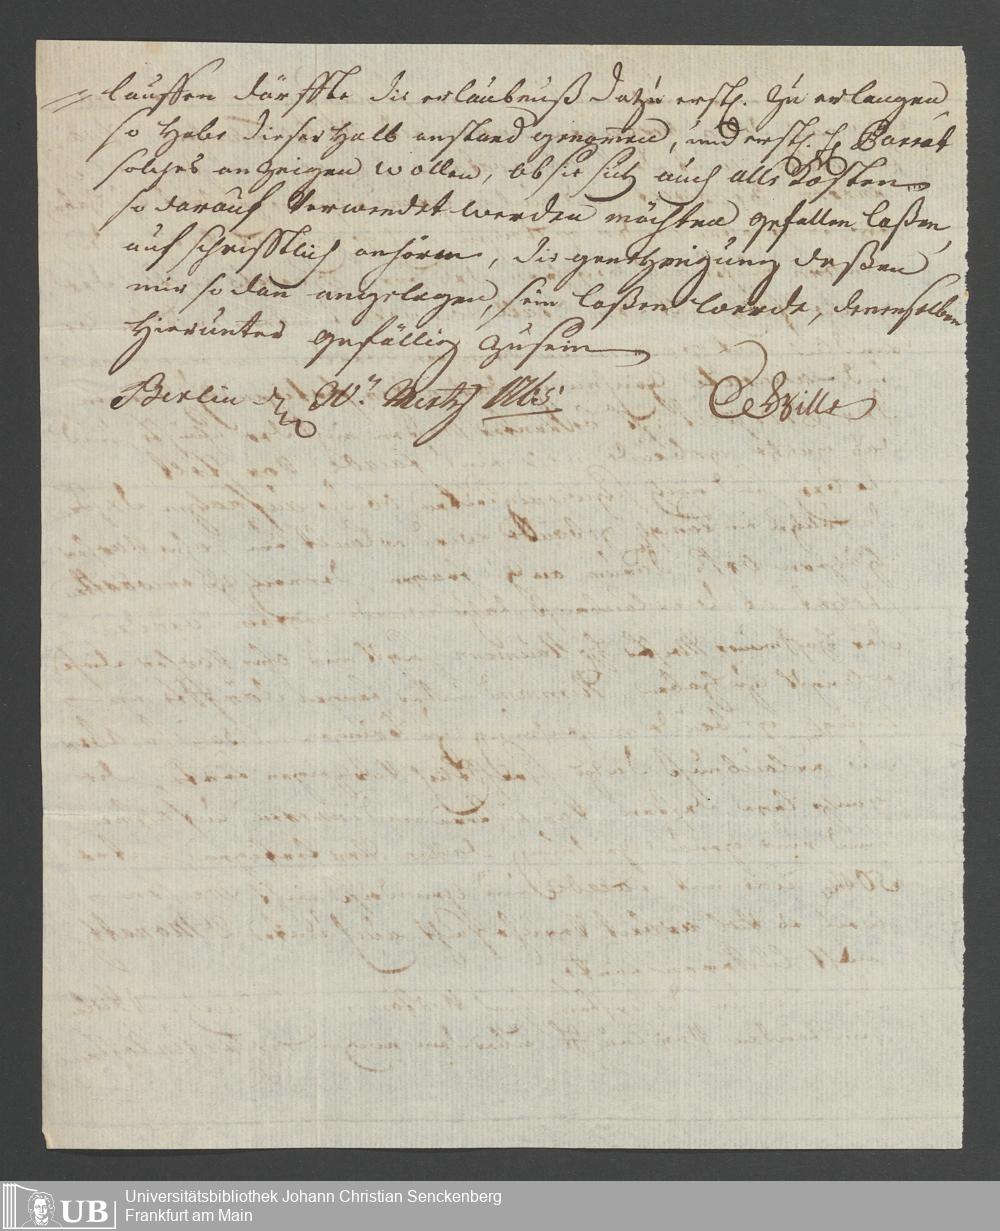 lauffen därffte die erlaubnuß dazu erstl. zu erlangen
so habe dieserhalb anstand genommen, und erstl. H Barrat
solches anzeigen wollen, ob sie sich auch alle Kosten
so darauf Verwendet werden möchten gefallen laßen,
auf schrifftlich anhören, die genehmigung deßen
mir so dan angelegen, sein laßen werde, denenselben
hierunter gefällig zu sein
Berlin den Mertz 1765
De Ville
Universitätsbibliothek Johann Christian Senckenberg
Frankfurt am Main
UB